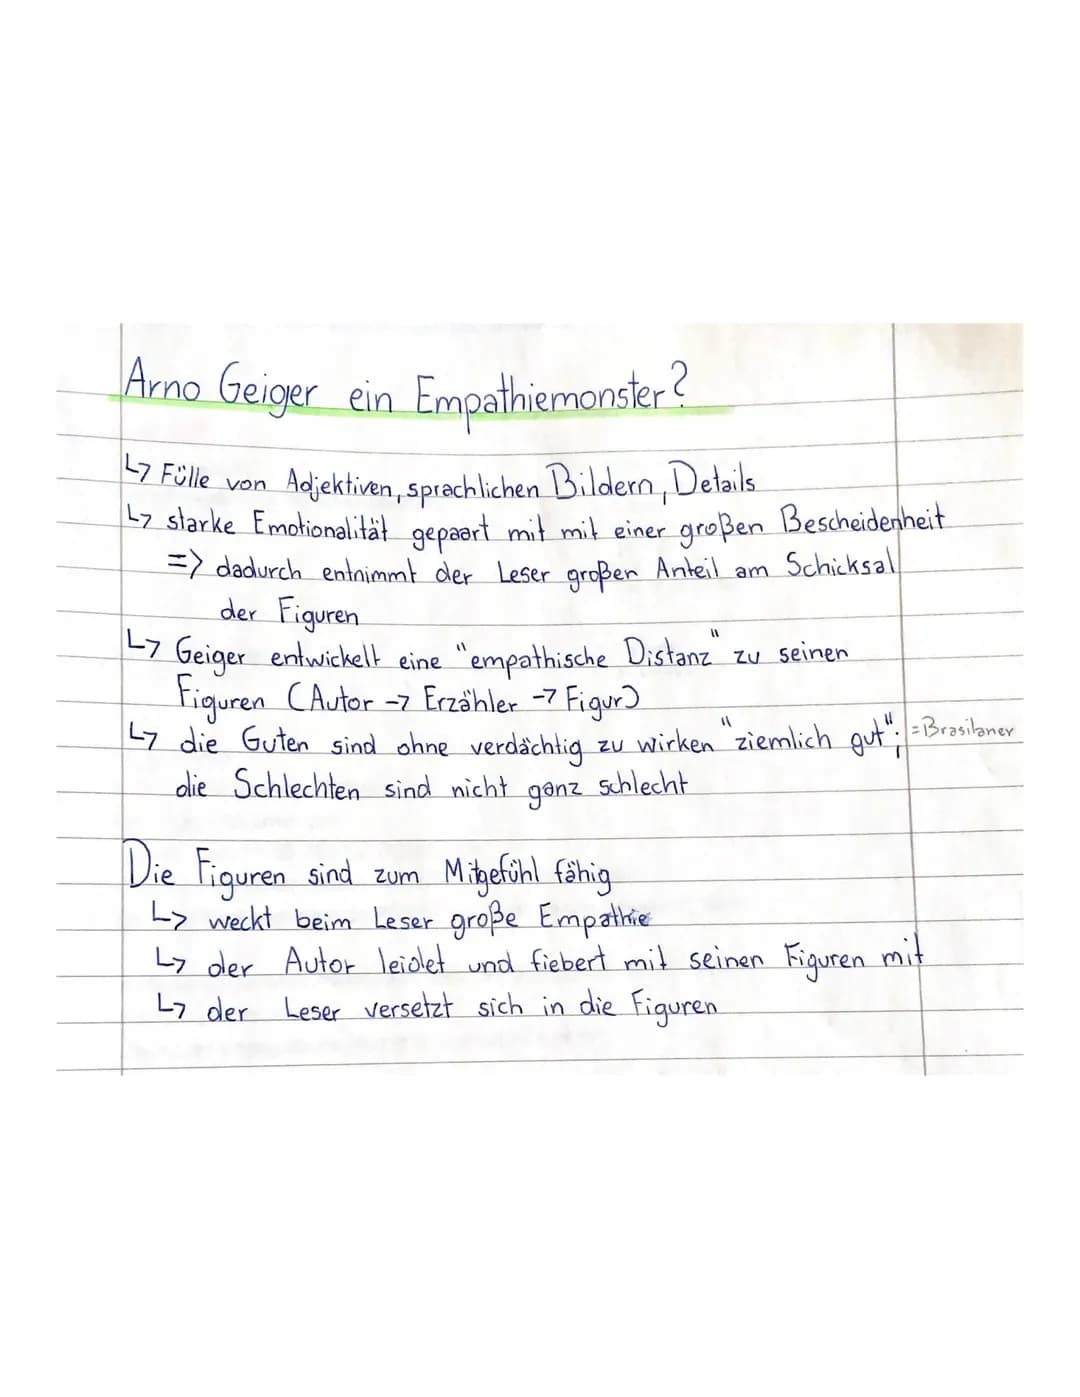 Arno Geiger ein Empathiemonster?
↳ Fülle von Adjektiven, sprachlichen Bildern, Details
↳ starke Emotionalität gepaart mit mit einer großen Bescheidenheit
=> dadurch entnimmt der Leser großen Anteil am Schicksal
der Figuren
↳ Geiger entwickelt eine "empathische Distanz" zu seinen
Figuren (Autor → Erzähler → Figur)
↳ die Guten sind ohne verdächtig zu wirken "ziemlich gut"; =Brasilaner
die Schlechten sind nicht ganz schlecht
Die Figuren sind zum Mitgefühl fähig
↳ weckt beim Leser große Empathie
↳ der Autor leidet und fiebert mit seinen Figuren mit
↳ der Leser versetzt sich in die Figuren